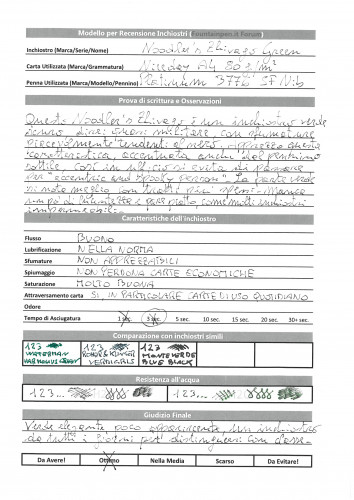 Modello per Recensione Inchiostri (Fountainpen.it Forum)
Inchiostro (Marca/Serie/Nome) Noodler's Ellivazo Green
Carta Utilizzata (Marca/Grammatura) Niceday A4 80 g/m²
Penna Utilizzata (Marca/Modello/Pennino) Platinum 3776 SF Nib
Prova di scrittura e Osservazioni
Questo Noodler's è un inchiostro verde
scuro, direi quasi militare, con sfumature
piacevolmente tendenti al nero, apprezzo questa
caratteristica accentuata anche dal pennino
sottile così in ufficio si evita di passare
per "eccentric and spooky person". La parte verde
si nota meglio con tratti più spessi. Manca
un po' di brillantezza e è piatto come molti inchiostri
impermeabili.
Caratteristiche dell'inchiostro
Flusso BUONO
Lubrificazione NELLA NORMA
Sfumature NON APPREZZABILI
Spiumaggio NON PERDONA CARTE ECONOMICHE
Saturazione MOLTO BUONA
Attraversamento carta SI IN PARTICOLARE CARTE DI USO QUOTIDIANO
Odore
Tempo di Asciugatura 1 sec. 3 sec. 5 sec. 10 sec. 15 sec. 20 sec. 30+ sec.
Comparazione con inchiostri simili
123 123 123
WATERMAN ROHRER & KLINGNER MONTEVERDE
HARMONIUS GREEN VERDIGRIS BLUE BLACK
Resistenza all'acqua
123... 123...
Giudizio Finale
Verde elegante poco appariscente, un inchiostro
da tutti i giorni per distinguersi con classe.
Da Avere! Ottimo Nella Media Scarso Da Evitare!